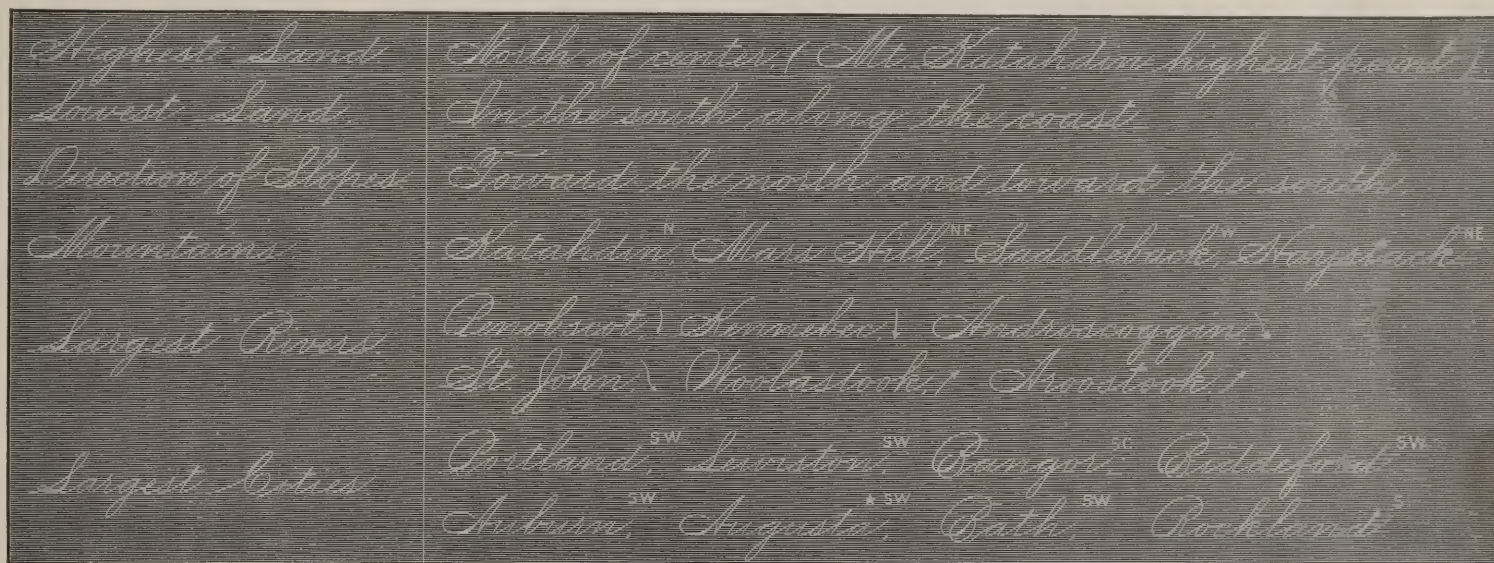 Highest Land North of center (Mt. Katahdin highest point)
Lowest Land In the south along the coast
Direction of Slopes Toward the north and toward the south
Mountains Katahdin, N Mars Hill, NE Saddleback, W Haystack NE
Largest Rivers
Penobscot, Kennebec, Androscoggin,
St. John, Woolastook, Aroostook,
Largest Cities
Portland, SW Lewiston, SW Bangor, SC Biddeford SW
Auburn, SW Augusta, ★ SW Bath, SW Rockland S